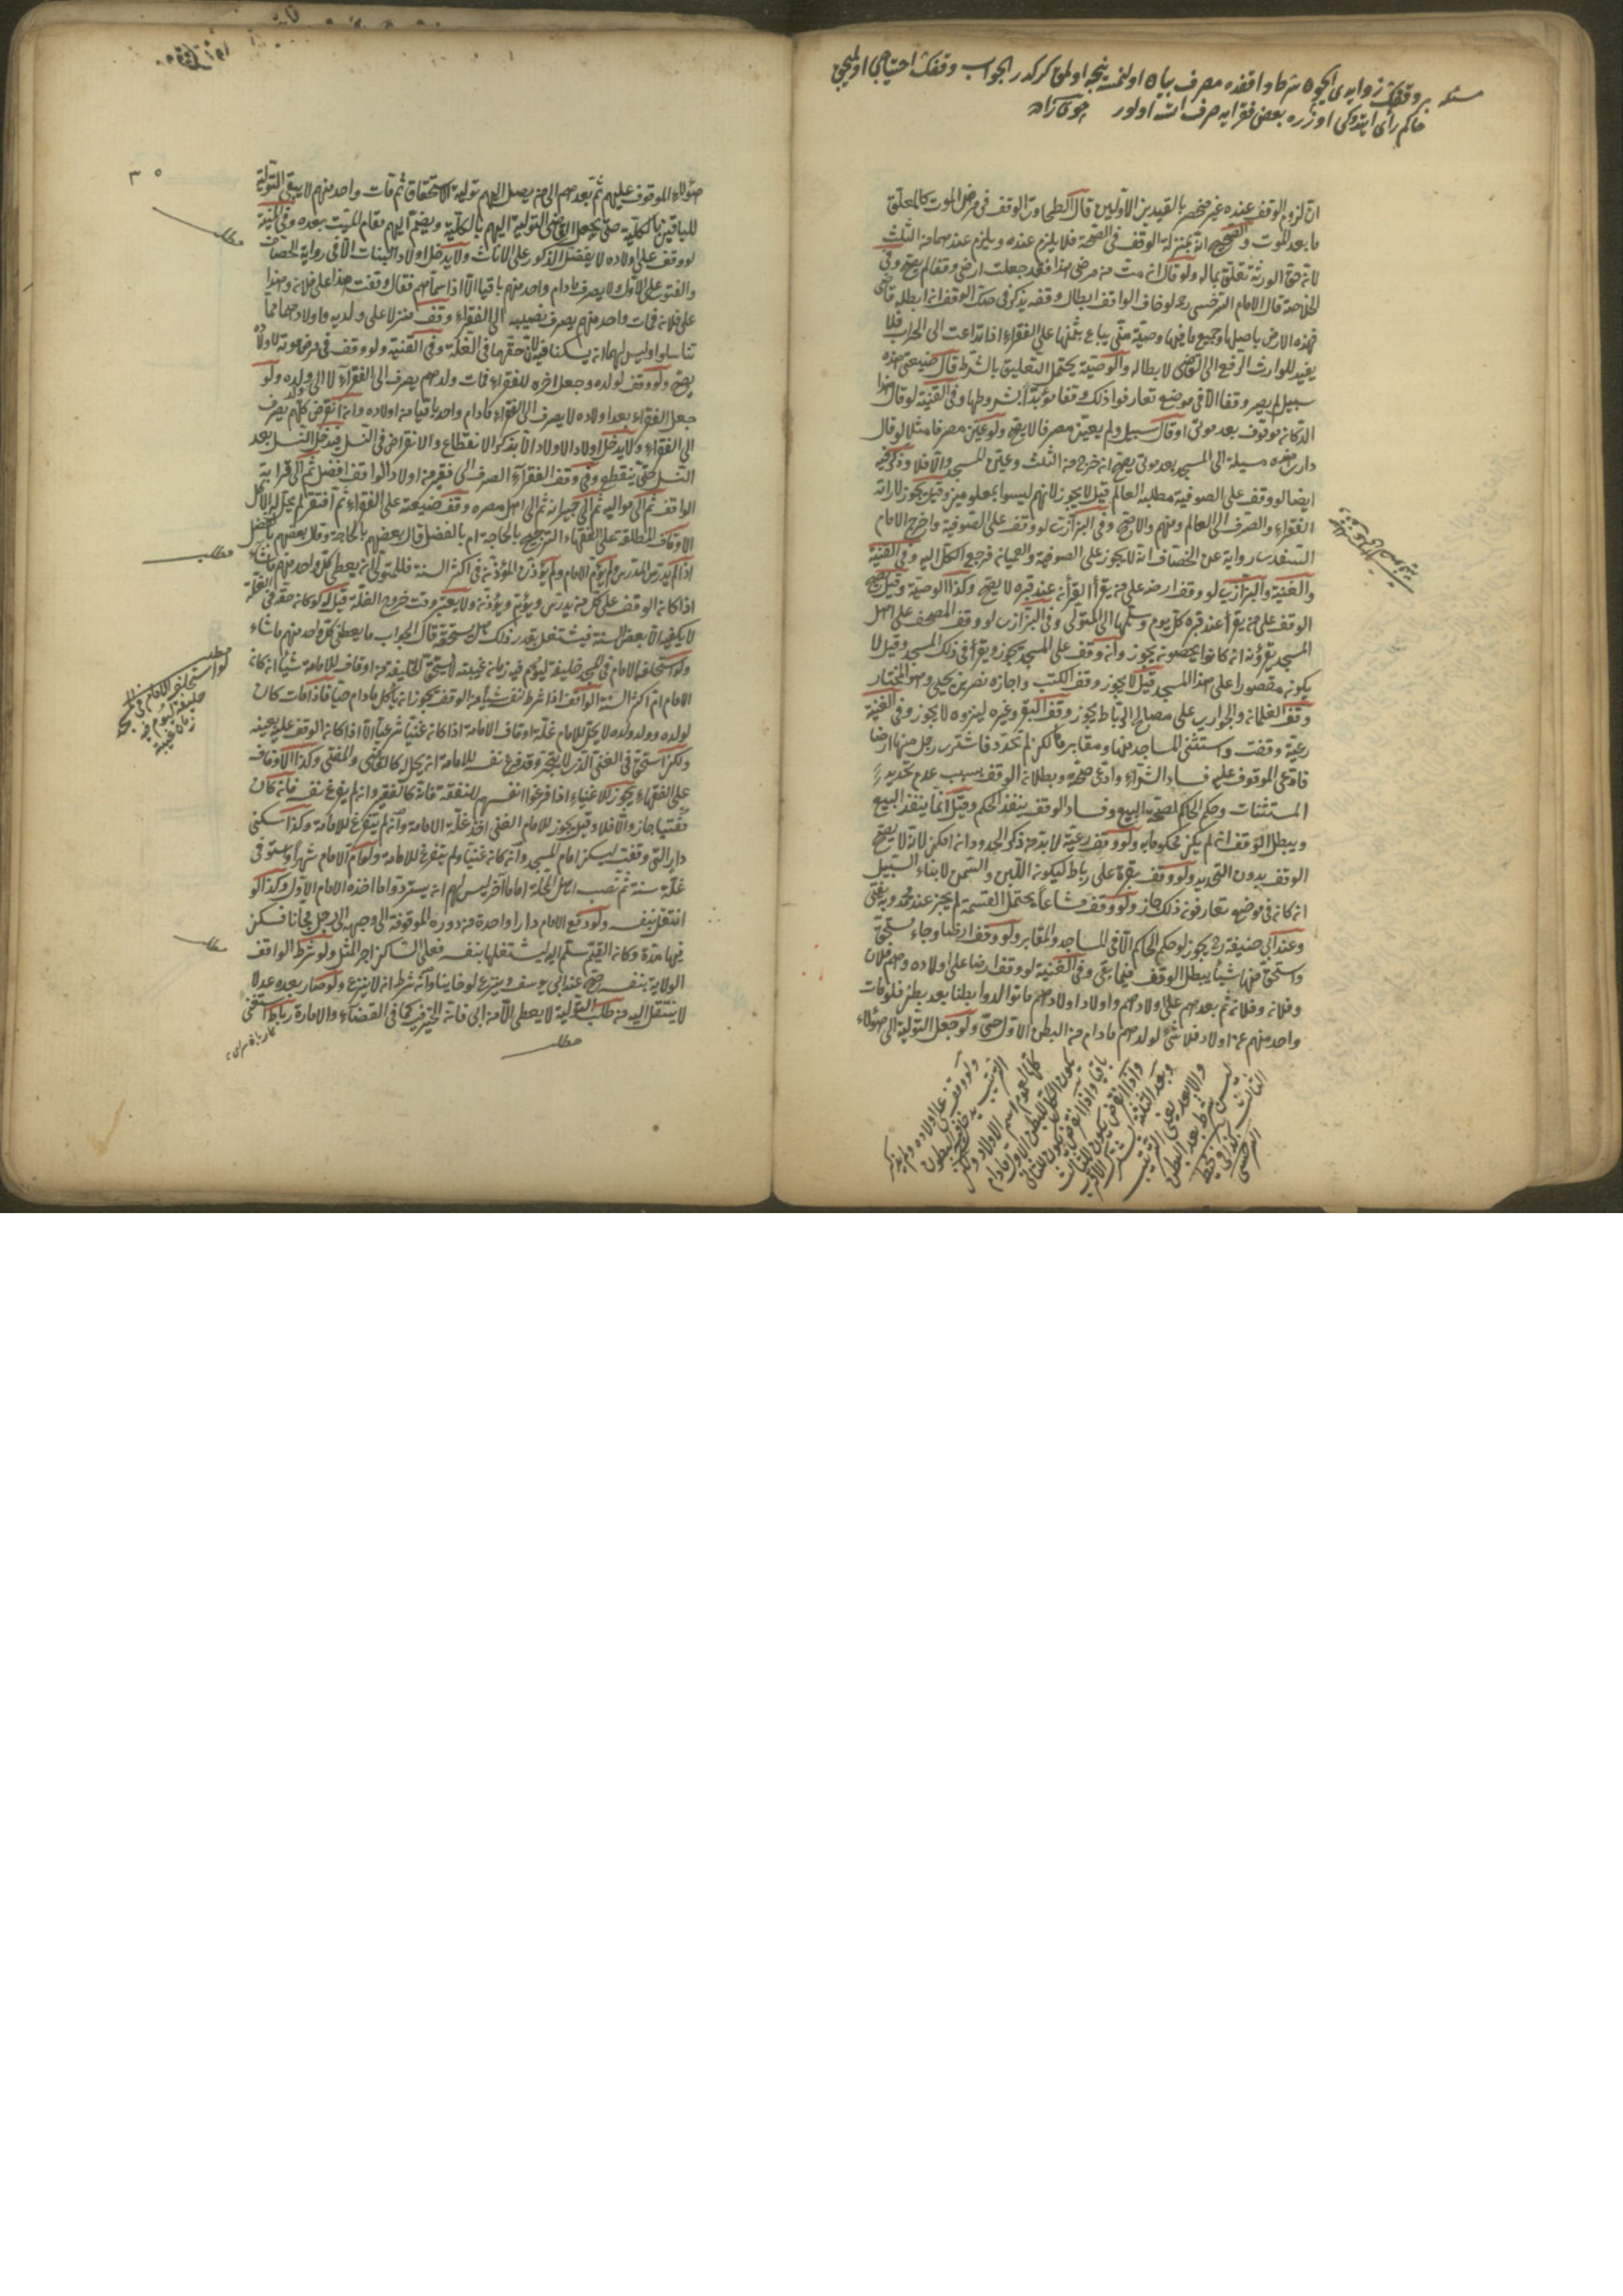 مسئله بر وقفك زوايدى ايچون شرط واقفده مصرف بيان اولنمسه نيجه اولمق كركدر الجواب وقفك احتياجى اولميجق
حاكم رأى ايتدوكى اوزره بعض فقرايه صرف اولنور جوى زاده
ان لزوم الوقف عنده غير منحصر بالقيدين الاولين قال الطحاوى الوقف فى مرض الموت كالمعلق
ما بعد الموت والصحيح انه بمنزلة الوقف فى الصحة فلا يلزم عنده ويلزم عندهما من الثلث
لانه حق الورثة تعلق بماله ولو قال ان مت من مرضى هذا فقد جعلت ارضى وقفا لم يصح وفى
الخلاصة قال الامام السرخسى رحمه لو خاف الواقف ابطال وقفه يذكر فى صك الوقف ان ابطله قاضى
فهذه الارض باصلها وجميع ما فيها وصية منى يباع بثمنها على الفقراء اذا تداعت الى الخراب فلا
يفيد للوارث الرفع الى القاضى لابطاله والوصية يحتمل التعليق بالشرط قال ضيعتى هذه
سبيل لم يصر وقفا الا فى موضع تعارفوا ذلك وقفا مؤبدا بشروطها وفى القنية لو قال هذا
الدكان موقوف بعد موتى او قال سبيل ولم يعين مصرفا لا يصح ولو عين مصرفا مثلا لو قال
دارى هذه مسبلة الى المسجد بعد موتى يصح ان خرج من الثلث وعين المسجد والا فلا وذكر فيه
ايضا لو وقف على الصوفية مطلبة العالم قيل لا يجوز لانهم ليسوا بمعلومين وقيل يجوز لارادة
الفقراء والصرف الى العالم ومنهم والاصح وفى البزازى لو وقف على الصوفية واخرج الامام
السغدى رواية عن الخصاف انه لا يجوز على الصوفية والعميان فرجع الكل اليه وفى القنية
والغنية والبزازى لو وقف ارضه على من يقرأ القرأن عند قبره لا يصح وكذا الوصية وقيل يصح
الوقف على من يقرأ عند قبره كل يوم وسلمها الى المتولى وفى البزازى لو وقف المصحف على اهل
المسجد يقرؤنه ان كانوا يحصون يجوز وان وقف على المسجد يجوز ويقرأ فى ذلك المسجد وقيل لا
يكون مقصورا على هذا المسجد قيل لا يجوز وقف الكتب واجازه نصر بن يحيى وهو المختار
وقف الغلمان والجوارى على مصالح الرباط يجوز وقف البقر وغيره لينزوه لا يجوز وفى القنية
رعية وقفت واستثنى المساجد منها ومقابر ولكن لم تحدد فاشترى رجل منها ارضا
فادعى الموقوف عليه فساد الشراء وادعى صحته وبطلان الوقف بسبب عدم تحديد
المستثنات وحكم الحاكم لصحة البيع وفساد الوقف ينفذ الحكم وقيل انما ينفذ البيع
ويبطل الوقف ان لم يكن محكوما به ولو وقف رعية لا بد من ذكر الحدود ان امكن لانه لا يصح
الوقف بدون التحديد ولو وقف بقرة على رباط ليكون اللبن والسمن لابناء السبيل
ان كان فى موضع تعارفون ذلك جاز ولو وقف مشاعا يحتمل القسمة لم يجز عند محمد وبه يفتى
وعند ابى حنيفة رح يجوز لو حكم الحاكم الا فى المساجد والمقابر ولو وقف ارضا وجاء مستحق
واستحق منها شيأ يبطل الوقف فيما بقى وفى القنية لو وقف ارضا على اولاده وهم فلان
وفلان وفلان ثم بعدهم على اولادهم واولاد اولادهم ما توالدوا بطنا بعد بطن فلو مات
واحد منهم عن اولاد فلا شئ لولدهم ما دام من البطن الاول حى ولو جعل التولية الى هؤلاء
ولو وقف على اولاده ولم يذكر
الترتيب يدخل فيه البطون
كلها لعموم اسم الاولاد ولكن
يكون الكل للبطن الاول ما دام
باقيا واذا انقرض يكون للثانى
واذا انقرض يكون للثالث
وبعد الثلثة يشترك الاقرب
والابعد يعنى الترتيب
ليس بشرط بعد البطن
الثالث
السرخسى
٣٥
هؤلاء الموقوف عليهم ثم بعدهم الى من يصل اليهم تولية الاستحقاق ثم مات واحد منهم لا يبقى التولية
للباقين بالكلية حتى يجعل القاضى التولية اليهم بالكلية ويضم اليهم مقام الميت بعده وفى المنية
لو وقف على اولاده لا يفضل الذكور على الاناث ولا يدخل اولاد البنات الا فى رواية الخصاف
والفتوى على الاول ولا يصرف ما دام واحد منهم باقيا الا اذا سماهم فقال وقفت هذا على فلان وهذا
على فلان فمات واحد منهم يصرف نصيبه الى الفقراء وقف منزلا على ولديه واولادهما
تناسلوا وليس لهما ان يسكنا فيه لان حقهما فى الغلة وفى القنية ولو وقف فى مرض موته لاولاده
يصح ولو وقف لولده وجعل اخره للفقراء فمات ولدهم يصرف الى الفقراء لا الى ولده ولو
جعل الفقراء بعد اولاده لا يصرف الى الفقراء ما دام واحد باقيا من اولاده وان انقرض كلهم يصرف
الى الفقراء ولا يدخل اولاد الاولاد الا بذكر الانقطاع والانقراض فى النسل فيدخل النسل بعد
النسل حتى ينقطع وفى وقف الفقراء الصرف الى فقير من اولاد الواقف افضل ثم الى قرابة
الواقف ثم الى مواليه ثم الى جيرانه ثم الى اهل مصره وقف ضيعته على الفقراء ثم افتقر لم يحل له الاكل
الاوقاف المطلقة على الفقهاء الترجيح بالحاجة ام بالفضل قال بعضهم بالحاجة وقال بعضهم بالفضل
اذا لم يدرس المدرس ولم يؤم الامام ولم يؤذن المؤذن فى اكثر السنة فللمتولى ان يعطى كل واحد منهم ما شاء
اذا كان الوقف على كل من يدرس ويؤم ويؤذن ولا يعتبر وقت خروج الغلة قيل له لو كان حقه فى الغلة
لا يكفيه الا بعض السنة فيشتغل بقدر ذلك هل يستحق قال الجواب ما يعطى كل واحد منهم ما شاء
ولو استخلف الامام فى المسجد خليفة ليؤم فيه زمان غيبته لا يستحق الخليفة من اوقاف الامامة شيأ ان كان
الامام ام اكثر السنة الواقف اذا شرط لنفسه شيأ من الوقف يجوز ان يأكل ما دام حيا فاذا مات كان
لولده وولد ولده لا يحل للامام غلة اوقاف الامامة اذا كان غنيا شرعيا الا اذا كان الوقف عليه بعينه
ولكن استحق فى الغنى الذى لا يتجر وقد فرغ نفسه للامامة ان يحل له كالقاضى والمفتى وكذا الاوقاف
على الفقهاء يجوز للاغنياء اذا فرغوا انفسهم للتفقه فانه كالفقير وان لم يفرغ نفسه فان كان
مفتيا جاز والا فلا وقيل يجوز للامام الغنى اخذ غلة الامامة وان لم يتفرغ للامامة وكذا سكنى
دار التى وقفت ليسكن امام المسجد وان كان غنيا ولم يتفرغ للامامة ولو ام الامام شهرا واستوفى
غلة سنة ثم نصب اهل المحلة اماما آخر ليس لهم ان يستردوا ما اخذه الامام الاول وكذا لو
انتقل بنفسه ولو دفع الامام دارا واحدة من دوره الموقوفة الى وجيهه الى رجل مجانا فسكن
فيها مدة وكان القيم سلم اليه ليشتغلها بنفسه فعلى الساكن اجر المثل ولو شرط الواقف
الولاية بنفسه صح عند ابى يوسف وينزع لو خاينا وان شرط ان لا ينزع ولو صار بعده عدلا
لا ينتقل اليه من طلب التولية لا يعطى الا من ابى فانه الخير فيه كما فى القضاء والامارة رباط استغنى
مطلب
مطلب
مطلب
لو استخلف الامام فى المسجد
خليفة ليؤم فيه
زمان غيبته
مطلب
مطلب